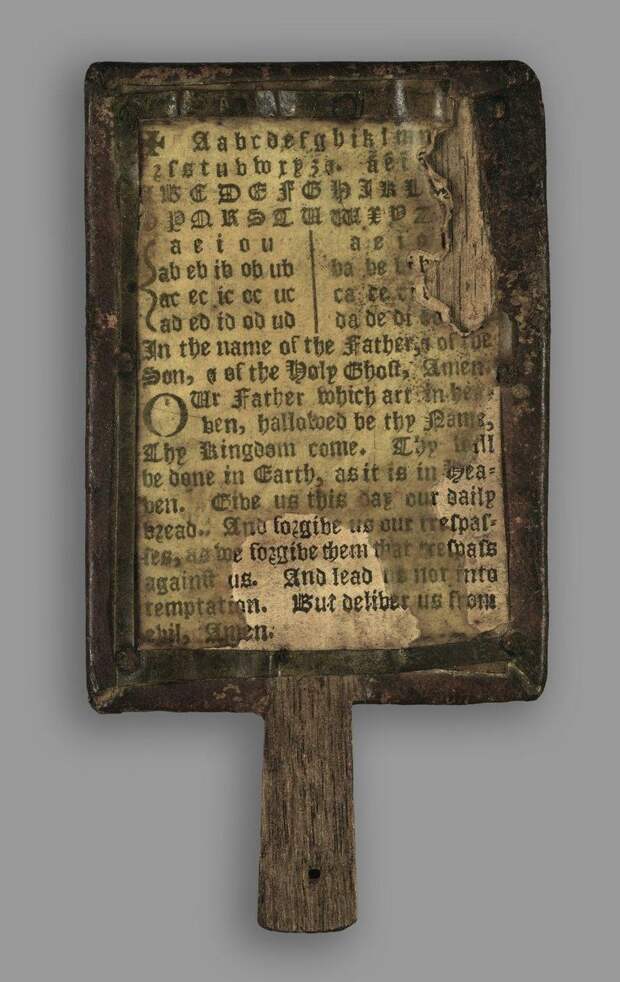 ✠ Aabcdefghiklmn
ꝛſstuvwxyzꝫ. ãẽĩ
BCDEFGHIKL
PQRSTUWXYZ
a e i o u a e i o
ab eb ib ob ub ba be bi
ac ec ic oc uc ca ce ci
ad ed id od ud da de di
In the name of the Father, & of the
Son, & of the Holy Ghoſt, Amen.
OUr Father which art in hea-
ven, hallowed be thy Name,
Thy Kingdom come. Thy will
be done in Earth, as it is in Hea-
ven. Give us this day our daily
bread. And forgive us our treſpaſ-
ſes, as we forgive them that treſpaſs
againſt us. And lead us not into
temptation. But deliver us from
evil, Amen.